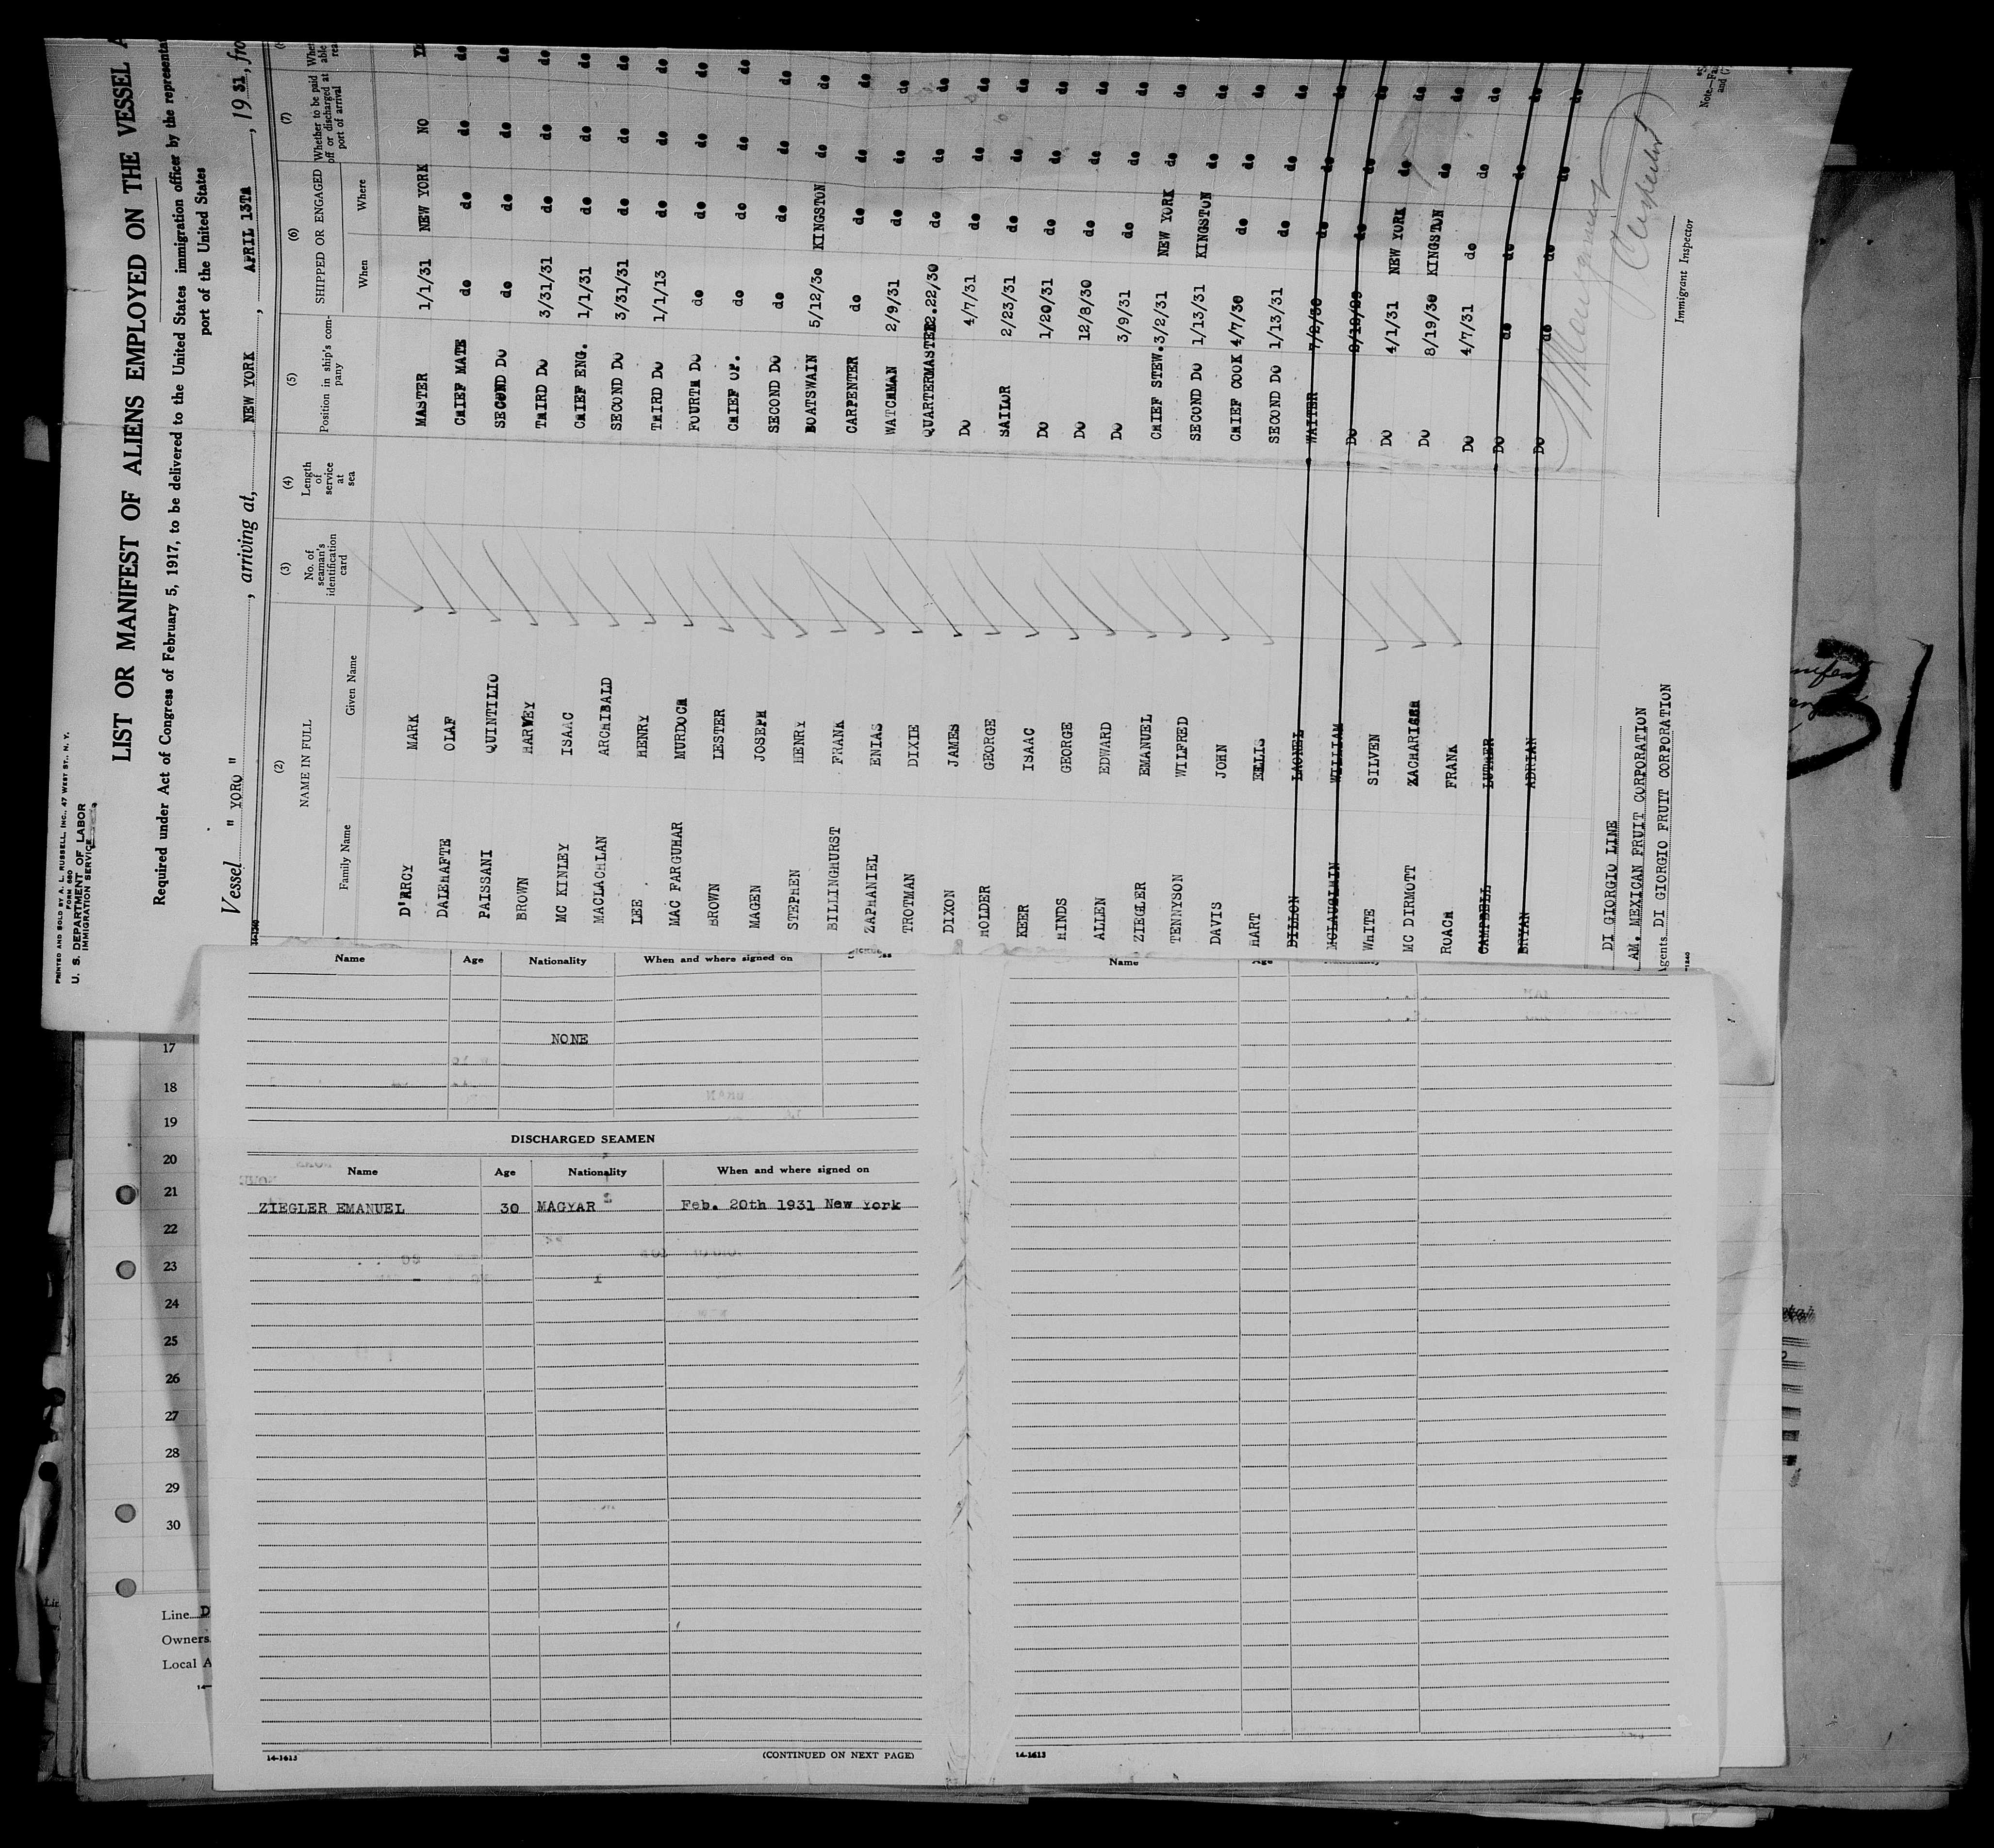 PRINTED AND SOLD BY A. L. RUSSELL, INC., 47 WEST ST., N. Y.
FORM 680
U. S. DEPARTMENT OF LABOR
IMMIGRATION SERVICE
LIST OR MANIFEST OF ALIENS EMPLOYED ON THE VESSEL A
Required under Act of Congress of February 5, 1917, to be delivered to the United States immigration officer by the representa
port of the United States
Vessel " YORO ", arriving at, NEW YORK, APRIL 13TH, 1931, fro
(2) (3) (4) (5) (6) (7)
NAME IN FULL No. of seaman's identification card Length of service at sea Position in ship's company SHIPPED OR ENGAGED Whether to be paid off or discharged at port of arrival
Family Name Given Name When Where
D'ARCY MARK MASTER 1/1/31 NEW YORK NO
DALEHAFTE OLAF CHIEF MATE do do do do
PAISSANI QUINTILIO SECOND Do do do do do
BROWN HARVEY THIRD Do 3/31/31 do do do
MC KINLEY ISAAC CHIEF ENG. 1/1/31 do do do
MACLACHLAN ARCHIBALD SECOND Do 3/31/31 do do do
LEE HENRY THIRD Do 1/1/13 do do do
MAC FARGUHAR MURDOCH FOURTH Do do do do do
BROWN LESTER CHIEF OP. do do do do
MAGEN JOSEPH SECOND Do do do do do
STEPHEN HENRY BOATSWAIN 5/12/30 KINGSTON do do
BILLINGHURST FRANK CARPENTER do do do do
ZAPHANIEL ENIAS WATCHMAN 2/9/31 do do do
TROTMAN DIXIE QUARTERMASTER 12.22/30 do do do
DIXON JAMES Do 4/7/31 do do do
HOLDER GEORGE SAILOR 2/23/31 do do do
KEER ISAAC Do 1/20/31 do do do
HINDS GEORGE Do 12/8/30 do do do
ALLEN EDWARD Do 3/9/31 do do do
ZIEGLER EMANUEL CHIEF STEW. 3/2/31 NEW YORK do do
TENNYSON WILFRED SECOND Do 1/13/31 KINGSTON do do
DAVIS JOHN CHIEF COOK 4/7/30 do do do
HART ELLIS SECOND Do 1/13/31 do do do
DILLON LAONEL WAITER 7/2/30 do do do
MCLAUGHWIN WILLIAM Do do do do
WHITE SILVEN Do 4/1/31 NEW YORK do do
MC DIRMOTT Do 8/19/30 KINGSTON do do
ROACH FRANK Do 4/7/31 do do do
CAMPBELL LUTHER Do do do do do
BRYAN ADRIAN Do do do do do
DI GIORGIO LINE
AM. MEXICAN FRUIT CORPORATION
Agents DI GIORGIO FRUIT CORPORATION
Immigrant Inspector
Note.—Fa
and (7
31
Name Age Nationality When and where signed on
NONE
DISCHARGED SEAMEN
Name Age Nationality When and where signed on
ZIEGLER EMANUEL 30 MAGYAR Feb. 20th 1931 New York
14-1613 (CONTINUED ON NEXT PAGE)
Name Age
14-1613
17
18
19
20
21
22
23
24
25
26
27
28
29
30
Line D
Owners
Local A